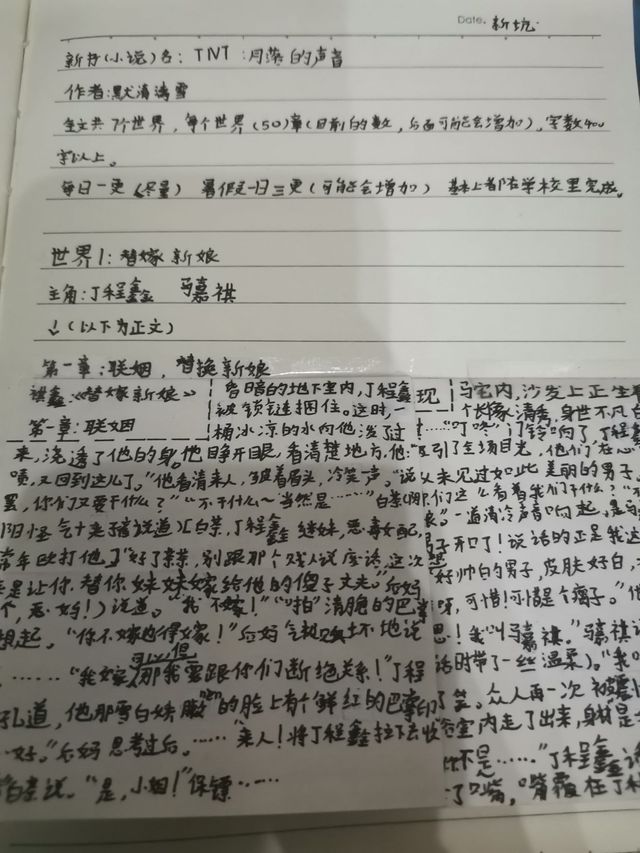 Date. 新坑
新书(小说)名：TNT：月落的声音
作者：默清涛雪
全文共7个世界，每个世界(50)章(目前的数，后面可能会增加)，字数400
字以上。
每日一更(尽量) 暑假一日三更(可能会增加) 基本上都在学校里完成。
世界1：替嫁新娘
主角：丁程鑫 马嘉祺
↓(以下为正文)
第一章：联姻，替换新娘
祺鑫：《替嫁新娘》
第一章：联姻
昏暗的地下室内，丁程鑫
被锁链捆住。这时，一
桶冰凉的水向他泼了过
来，浇透了他的身。他睁开眼，看清楚地方，他：“
啧，又回到这儿了。”他看清来人，皱着眉头，冷笑一声。“说
罢，你们又要干什么？”“不干什么～当然是……”白
阳怪气十足
常年欧打他。】“好了，别跟那个贱人说废话，这次
是让你替你妹妹嫁给他的傻子丈夫。”后妈
个，恶妈！)说道。“我不嫁！”“啪”清脆的巴掌
想起。“你不嫁也得嫁！”后妈气极败坏地说
……“我嫁，可以但那我要跟你们断绝关系！”丁程
孔道，他那雪白嫩nen的脸上有个鲜红的巴掌印
好。”后妈思考过后。……“来人！将丁程鑫拉下去
说。“是，小姐！”保镖……
现
马宅内，沙发上正坐着
个长相清秀，身世不凡
……“叮咚”门铃响了，丁程鑫
引了全场目光，他们在心
从未见过如此美丽的男子
们这么看着我们干什么？”
一道清冷声音响起。
子开口了！说话的正是我这
好帅的男子，皮肤好白，
呀，可惜！可惜是个瘸子。”
思！我叫马嘉祺。”马嘉祺
话时带了一丝温柔)。“我
了笑。众人再一次被
室内走了出来，身材是
不是……”丁程鑫
了嘴，嘴覆在丁